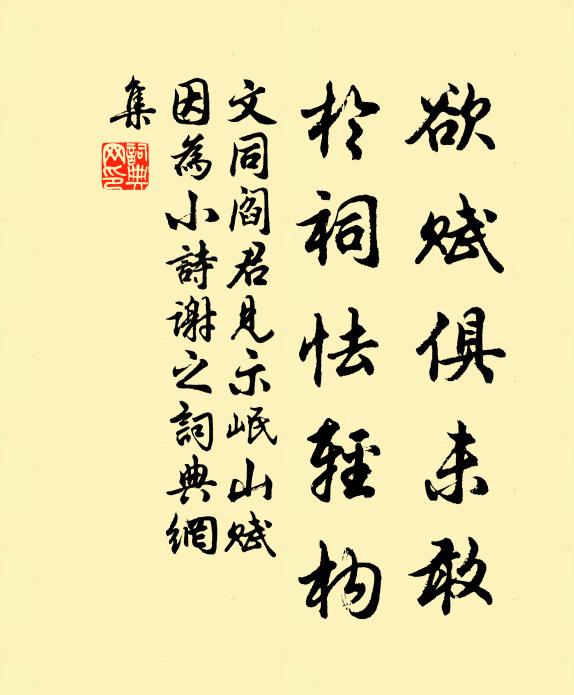 欲赋俱未敢
於祠怯輕构
文同阎君見示岷山赋
因為小詩谢之詞典網
集
詞典网印